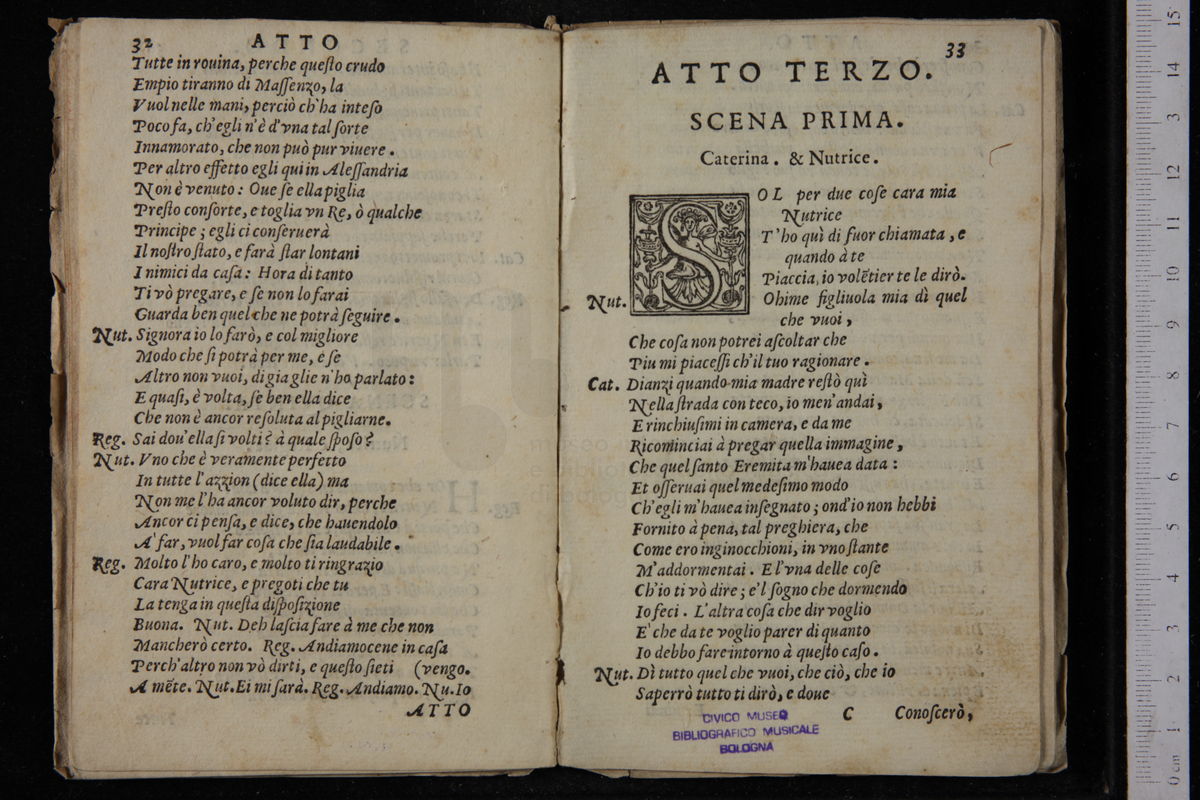 32 ATTO
Tutte in rouina, perche queſto crudo
Empio tiranno di Maſſenzo, la
Vuol nelle mani, perciò ch'ha inteſo
Poco fa, ch'egli n'è d'vna tal ſorte
Innamorato, che non può pur viuere.
Per altro effetto egli qui in Aleſſandria
Non è venuto: Oue ſe ella piglia
Preſto conſorte, e toglia vn Re, ò qualche
Principe; egli ci conſeruerà
Il noſtro ſtato, e farà ſtar lontani
I nimici da caſa: Hora di tanto
Ti vò pregare, e ſe non lo farai
Guarda ben quel che ne potrà ſeguire.
Nut. Signora io lo farò, e col migliore
Modo che ſi potrà per me, e ſe
Altro non vuoi, di gia glie n'ho parlato:
E quaſi, è volta, ſe ben ella dice
Che non è ancor reſoluta al pigliarne.
Reg. Sai dou'ella ſi volti? à quale ſpoſo?
Nut. Vno che è veramente perfetto
In tutte l'azzion (dice ella) ma
Non me l'ha ancor voluto dir, perche
Ancor ci penſa, e dice, che hauendolo
A' far, vuol far coſa che ſia laudabile.
Reg. Molto l'ho caro, e molto ti ringrazio
Cara Nutrice, e pregoti che tu
La tenga in queſta diſpoſizione
Buona. Nut. Deh laſcia fare à me che non
Mancherò certo. Reg. Andiamocene in caſa
Perch'altro non vò dirti, e queſto ſieti (vengo.
A mēte. Nut. Ei mi ſarà. Reg. Andiamo. Nu. Io
ATTO
33
ATTO TERZO.
SCENA PRIMA.
Caterina. & Nutrice.
SOL per due coſe cara mia
Nutrice
T'ho quì di fuor chiamata, e
quando à te
Piaccia, io volētier te le dirò.
Nut. Ohime figliuola mia dì quel
che vuoi,
Che coſa non potrei aſcoltar che
Piu mi piaceſſi ch'il tuo ragionare.
Cat. Dianzi quando mia madre reſtò quì
Nella ſtrada con teco, io men'andai,
E rinchiuſimi in camera, e da me
Ricominciai à pregar quella immagine,
Che quel ſanto Eremita m'hauea data:
Et oſſeruai quel medeſimo modo
Ch'egli m'hauea inſegnato; ond'io non hebbi
Fornito à pena, tal preghiera, che
Come ero inginocchioni, in vno ſtante
M'addormentai. E l'vna delle coſe
Ch'io ti vò dire; e'l ſogno che dormendo
Io feci. L'altra coſa che dir voglio
E' che da te voglio parer di quanto
Io debbo fare intorno à queſto caſo.
Nut. Dì tutto quel che vuoi, che ciò, che io
Saperrò tutto ti dirò, e doue
C Conoſcerò,
CIVICO MUSEO
BIBLIOGRAFICO MUSICALE
BOLOGNA